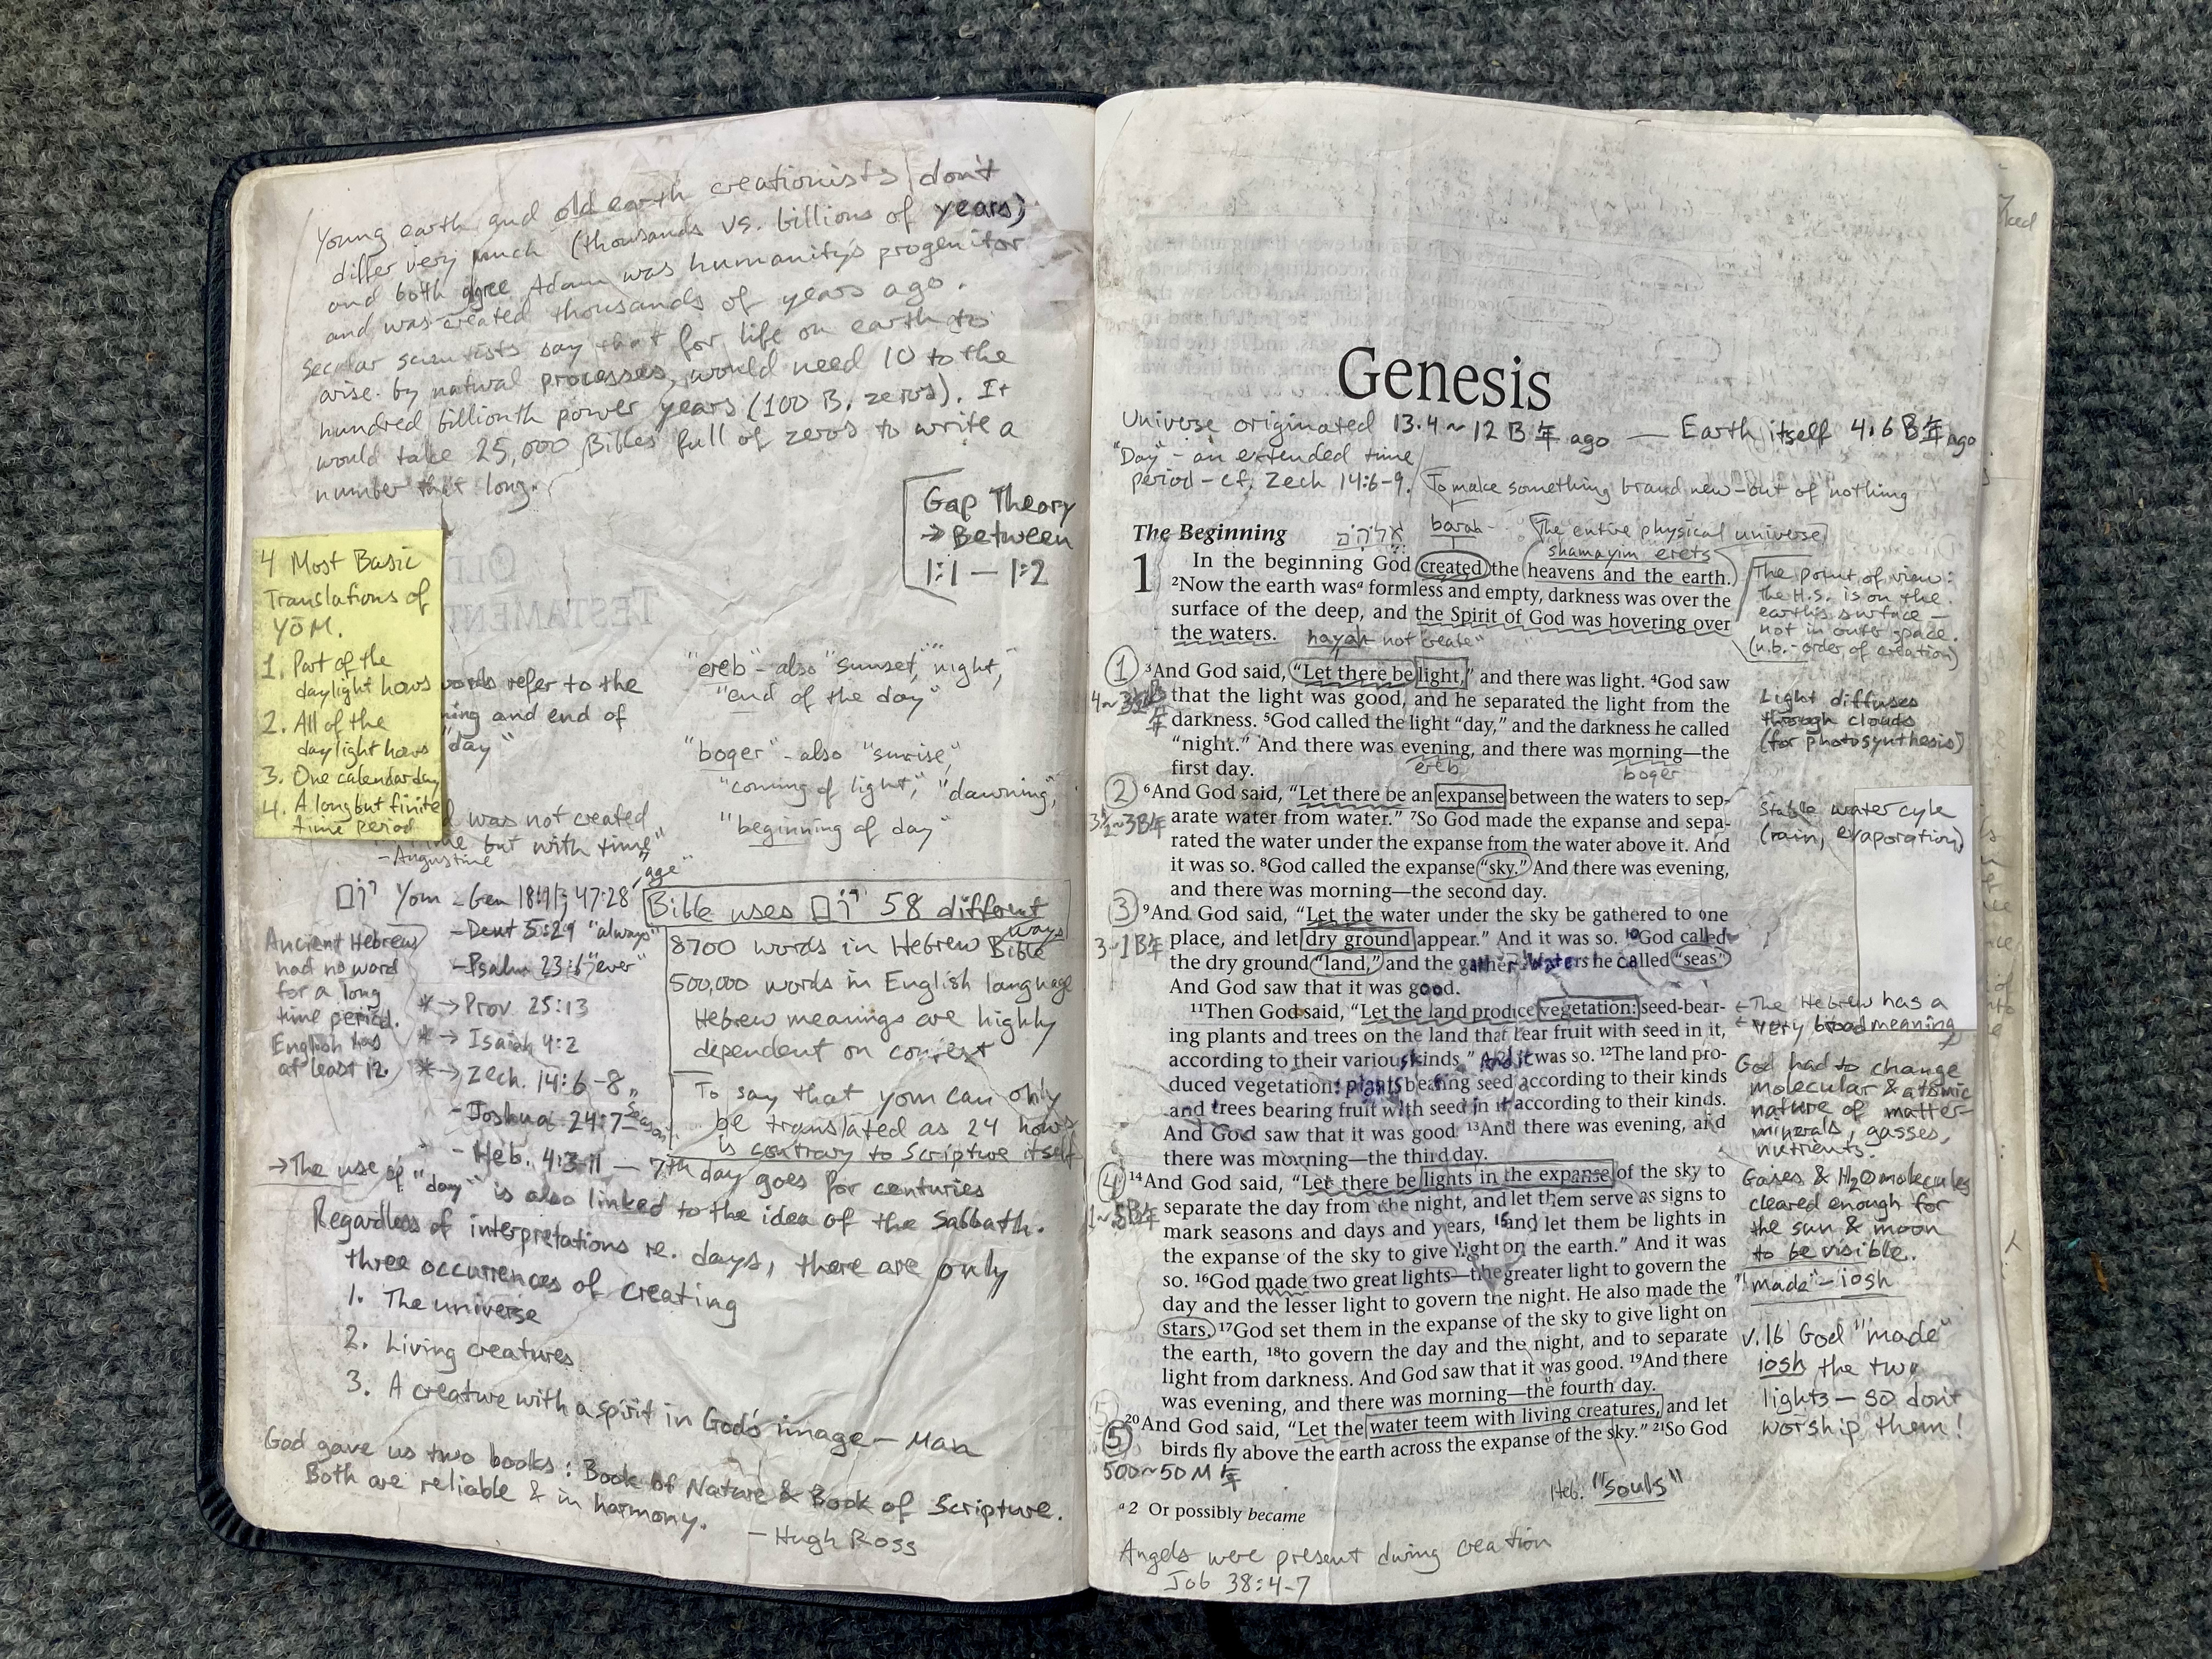 Young earth and old earth creationists don't
differ very much (thousands vs. billions of years)
and both agree Adam was humanity's progenitor
and was created thousands of years ago.
Secular scientists say that for life on earth to
arise by natural processes, would need 10 to the
hundred billionth power years (100 B. zeros). It
would take 25,000 Bibles full of zeros to write a
number that long.
Gap Theory
→ Between
1:1 — 1:2
OLD
TESTAMENT
4 Most Basic
Translations of
YŌM.
1. Part of the
daylight hours
2. All of the
daylight hours
3. One calendar day
4. A long but finite
time period
words refer to the
and end of
"day"
"ereb" - also "sunset," "night,"
"end of the day"
"boger" - also "sunrise,"
"coming of light," "dawning,"
"beginning of day"
was not created
but with time"
- Augustine
"age"
יום Yom - Gen 18:11; 47:28
- Deut 5:29 "always"
- Psalm 23:6 "ever"
* → Prov 25:13
* → Isaiah 4:2
* → Zech. 14:6-8
- Joshua 24:7 "season"
- Heb. 4:3-11 — 7th day goes for centuries
Ancient Hebrews
had no word
for a long
time period.
English has
at least 12.
Bible uses יום 58 different
ways
8700 words in Hebrew Bible
500,000 words in English language
Hebrew meanings are highly
dependent on context
To say that yom can only
be translated as 24 hours
is contrary to Scripture itself
→ The use of "day" is also linked to the idea of the Sabbath.
Regardless of interpretations re. days, there are only
three occurrences of creating
1. The universe
2. Living creatures
3. A creature with a spirit in God's image — Man
God gave us two books: Book of Nature & Book of Scripture.
Both are reliable & in harmony.
— Hugh Ross
Genesis
Universe originated 13.4~12 B年 ago — Earth itself 4.6 B年 ago
"Day" - an extended time
period - cf. Zech 14:6-9.
To make something brand new - out of nothing
The Beginning
barah
The entire physical universe
shamayim erets
1 In the beginning God created the heavens and the earth.
²Now the earth was ᵃ formless and empty, darkness was over the
surface of the deep, and the Spirit of God was hovering over
the waters.
hayah not "create"
The point of view:
The H.S. is on the
earth's surface —
not in outer space.
(n.b. - order of creation)
1
4~3½B年
³And God said, "Let there be light," and there was light. ⁴God saw
that the light was good, and he separated the light from the
darkness. ⁵God called the light "day," and the darkness he called
"night." And there was evening, and there was morning—the
first day.
ereb
boger
Light diffuses
through clouds
(for photosynthesis)
2
3½~3B年
⁶And God said, "Let there be an expanse between the waters to sep-
arate water from water." ⁷So God made the expanse and sepa-
rated the water under the expanse from the water above it. And
it was so. ⁸God called the expanse "sky." And there was evening,
and there was morning—the second day.
Stable water cyle
(rain, evaporation)
3
3~1B年
⁹And God said, "Let the water under the sky be gathered to one
place, and let dry ground appear." And it was so. ¹⁰God called
the dry ground "land," and the gather waters he called "seas."
And God saw that it was good.
¹¹Then God said, "Let the land produce vegetation: seed-bear-
ing plants and trees on the land that bear fruit with seed in it,
according to their various kinds." And it was so. ¹²The land pro-
duced vegetation: plants bearing seed according to their kinds
and trees bearing fruit with seed in it according to their kinds.
And God saw that it was good. ¹³And there was evening, and
there was morning—the third day.
← The Hebrew has a
very broad meaning
God had to change
molecular & atomic
nature of matter -
minerals, gasses,
nutrients.
4
¹⁴And God said, "Let there be lights in the expanse of the sky to
separate the day from the night, and let them serve as signs to
mark seasons and days and years, ¹⁵and let them be lights in
the expanse of the sky to give light on the earth." And it was
so. ¹⁶God made two great lights—the greater light to govern the
day and the lesser light to govern the night. He also made the
stars. ¹⁷God set them in the expanse of the sky to give light on
the earth, ¹⁸to govern the day and the night, and to separate
light from darkness. And God saw that it was good. ¹⁹And there
was evening, and there was morning—the fourth day.
Gases & H₂O molecules
cleared enough for
the sun & moon
to be visible.
"made" - iosh
v.16 God "made"
iosh the two
lights — so don't
worship them!
5
500~50 M年
²⁰And God said, "Let the water teem with living creatures, and let
birds fly above the earth across the expanse of the sky." ²¹So God
Heb. "souls"
ᵃ 2 Or possibly became
Angels were present during creation
Job 38:4-7